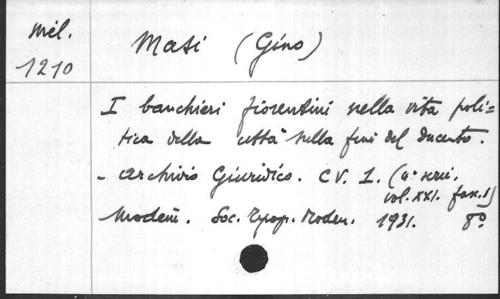 Mél.
1210
Masi (Gino)
I banchieri fiorentini nella vita poli=
tica della città sulla fine del Ducento.
- Archivio Giuridico. CV. 1. (4ª serie,
vol. XXI. fasc. 1)
Modena. Soc. Tipogr. Moden. 1931. 8º